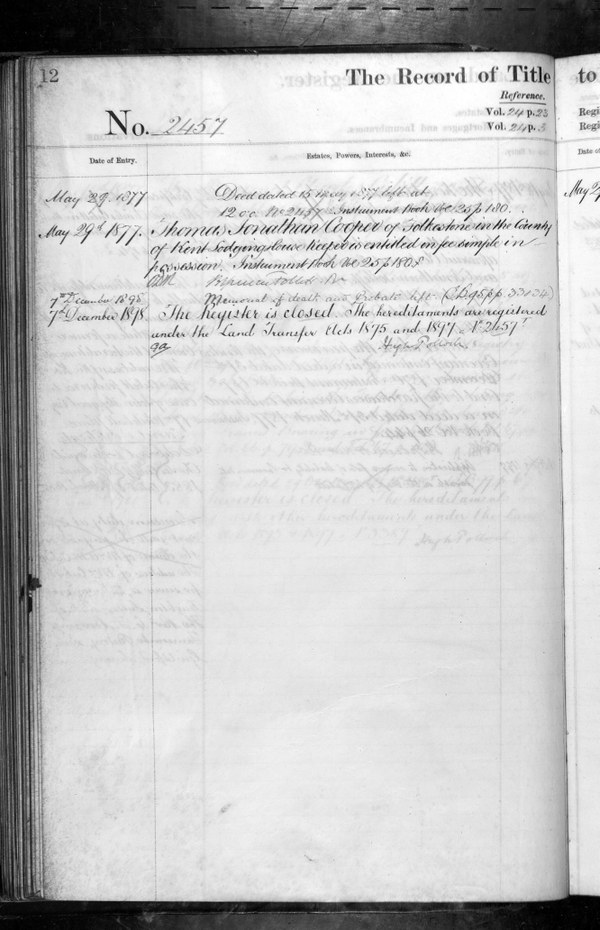 12
The Record of Title
Reference.
Vol. 24 p. 23
Vol. 24 p. 5
No. 2457
Date of Entry.
Estates, Powers, Interests, &c.
May 29. 1877
Deed dated 15 May 1877 left at
12 o.c. No 2457 Instrument Book No 25 p 180.
May 29th 1877.
Thomas Jonathan Cooper of Folkestone in the County
of Kent Lodginghouse Keeper is entitled in fee simple in
possession. Instrument Book No 25 p 180
7th December 1898
Memorial of death and Probate left
33 & 34
7th December 1898
The Register is closed. The hereditaments are registered
under the Land Transfer Acts 1875 and 1897. No 2457
Hugh Pollock
to
Regi
Regi
Date of
May 2